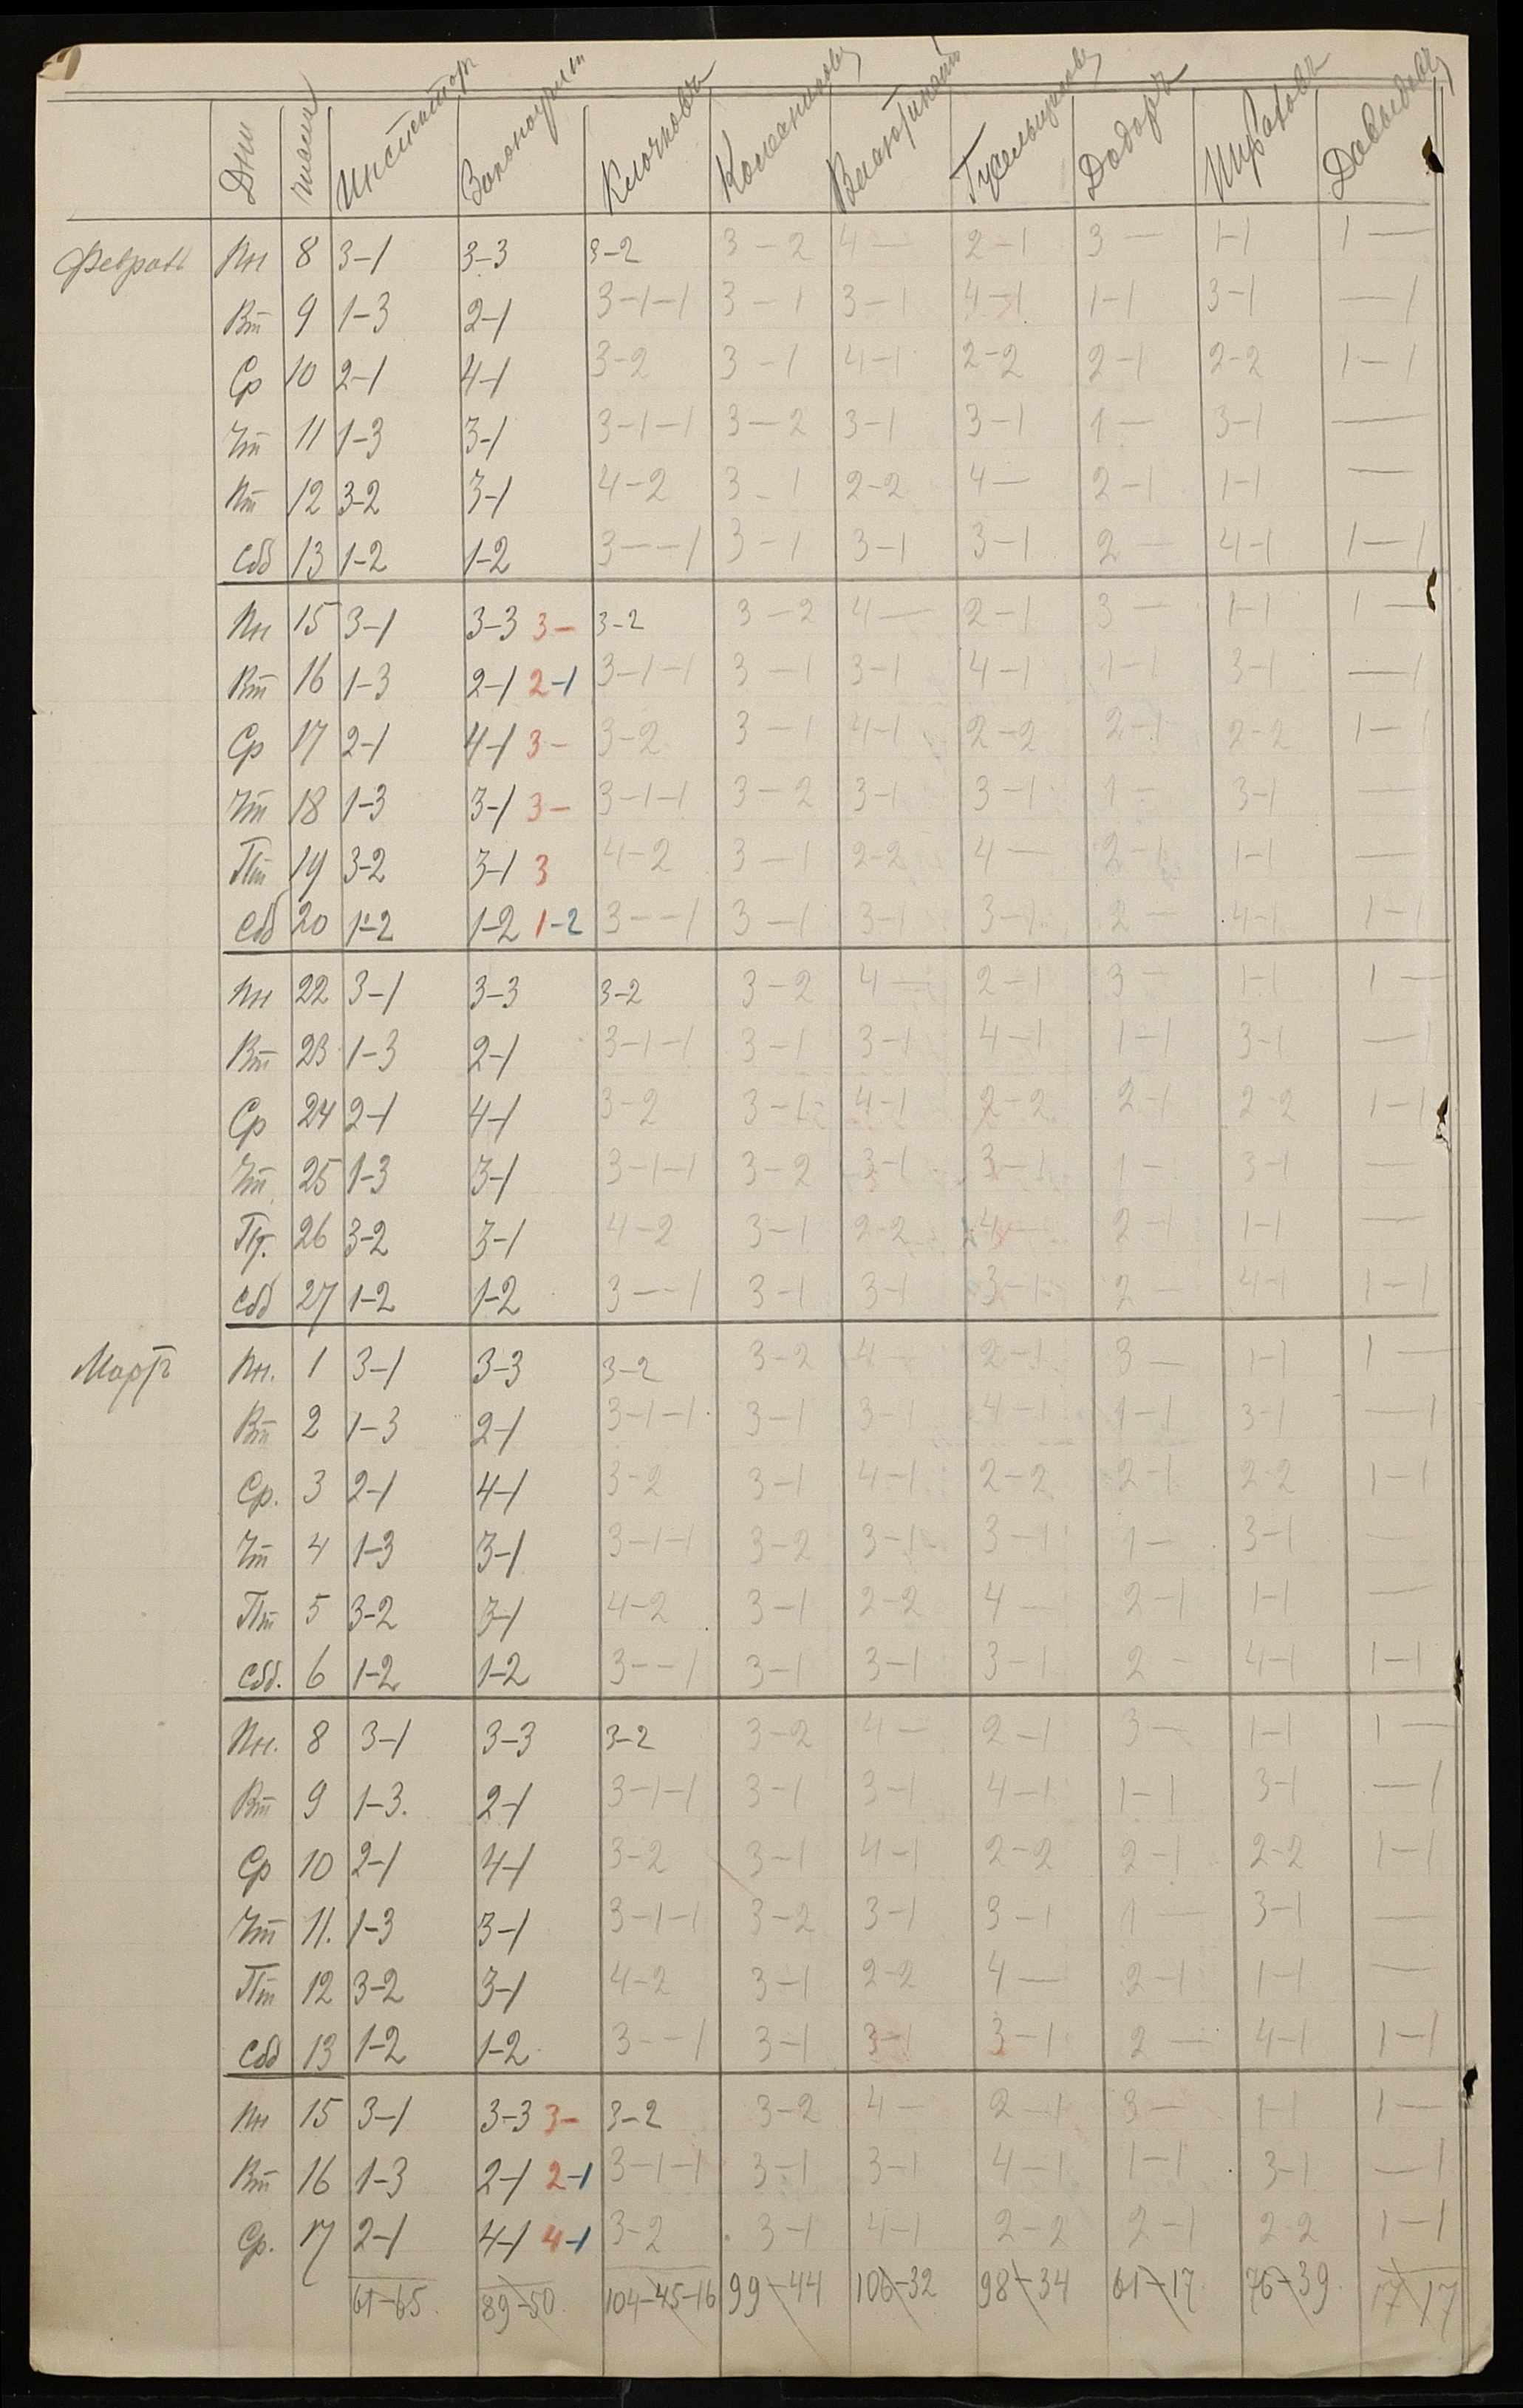 Дни Число Инспектор Законоучит Клочковъ Колесникову Додоръ Давыдову
Февраль Пн 8 3-1 3-3 3-2 3-2 4— 2-1 3— 1-1 1—
Вт 9 1-3 2-1 3-1-1 3-1 3-1 4-1 1-1 3-1 —1
Ср 10 2-1 4-1 3-2 3-1 4-1 2-2 2-1 2-2 1-1
Чт 11 1-3 3-1 3-1-1 3-2 3-1 3-1 1— 3-1 —
Пт 12 3-2 3-1 4-2 3-1 2-2 4— 2-1 1-1 —
Сбб 13 1-2 1-2 3--1 3-1 3-1 3-1 2— 4-1 1-1
Пн 15 3-1 3-3 3- 3-2 3-2 4— 2-1 3— 1-1 1—
Вт 16 1-3 2-1 2-1 3-1-1 3-1 3-1 4-1 1-1 3-1 —1
Ср 17 2-1 4-1 3- 3-2 3-1 4-1 2-2 2-1 2-2 1-1
Чт 18 1-3 3-1 3- 3-1-1 3-2 3-1 3-1 1- 3-1 —
Пт 19 3-2 3-1 3 4-2 3-1 2-2 4— 2-1 1-1 —
Сбб 20 1-2 1-2 1-2 3--1 3-1 3-1 3-1 2— 4-1 1-1
Пн 22 3-1 3-3 3-2 3-2 4— 2-1 3— 1-1 1—
Вт 23 1-3 2-1 3-1-1 3-1 3-1 4-1 1-1 3-1 —1
Ср 24 2-1 4-1 3-2 3-1 4-1 2-2 2-1 2-2 1-1
Чт 25 1-3 3-1 3-1-1 3-2 3-1 3-1 1- 3-1 —
Пт. 26 3-2 3-1 4-2 3-1 2-2 4— 2-1 1-1 —
Сбб 27 1-2 1-2 3--1 3-1 3-1 3-1 2— 4-1 1-1
Мартъ Пн. 1 3-1 3-3 3-2 3-2 4— 2-1 3— 1-1 1—
Вт 2 1-3 2-1 3-1-1 3-1 3-1 4-1 1-1 3-1 —1
Ср. 3 2-1 4-1 3-2 3-1 4-1 2-2 2-1 2-2 1-1
Чт 4 1-3 3-1 3-1-1 3-2 3-1 3-1 1— 3-1 —
Пт 5 3-2 3-1 4-2 3-1 2-2 4— 2-1 1-1 —
Сбб. 6 1-2 1-2 3--1 3-1 3-1 3-1 2- 4-1 1-1
Пн. 8 3-1 3-3 3-2 3-2 4— 2-1 3— 1-1 1—
Вт 9 1-3. 2-1 3-1-1 3-1 3-1 4-1 1-1 3-1 —1
Ср 10 2-1 4-1 3-2 3-1 4-1 2-2 2-1 2-2 1-1
Чт 11. 1-3 3-1 3-1-1 3-2 3-1 3-1 1— 3-1 —
Пт 12 3-2 3-1 4-2 3-1 2-2 4— 2-1 1-1 —
Сбб 13 1-2 1-2 3--1 3-1 3-1 3-1 2— 4-1 1-1
Пн 15 3-1 3-3 3- 3-2 3-2 4— 2-1 3— 1-1 1—
Вт 16 1-3 2-1 2-1 3-1-1 3-1 3-1 4-1 1-1 3-1 —1
Ср. 17 2-1 4-1 4-1 3-2 3-1 4-1 2-2 2-1 2-2 1-1
61-65. 89-50 104-45-16 99-44 106-32 98-34 61-17 76-39. 17 17